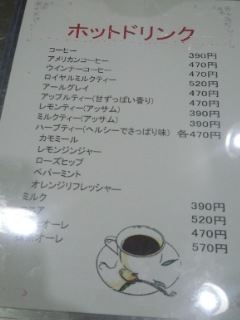 ホットドリンク
コーヒー 390円
アメリカンコーヒー 470円
ウインナーコーヒー 470円
ロイヤルミルクティー 520円
アールグレイ 470円
アップルティー(甘ずっぱい香り) 470円
レモンティー(アッサム) 390円
ミルクティー(アッサム) 390円
ハーブティー(ヘルシーでさっぱり味) 各470円
カモミール
レモンジンジャー
ローズヒップ
ペパーミント
オレンジリフレッシャー
ミルク 390円
ココア 520円
オーレ 470円
オーレ 570円